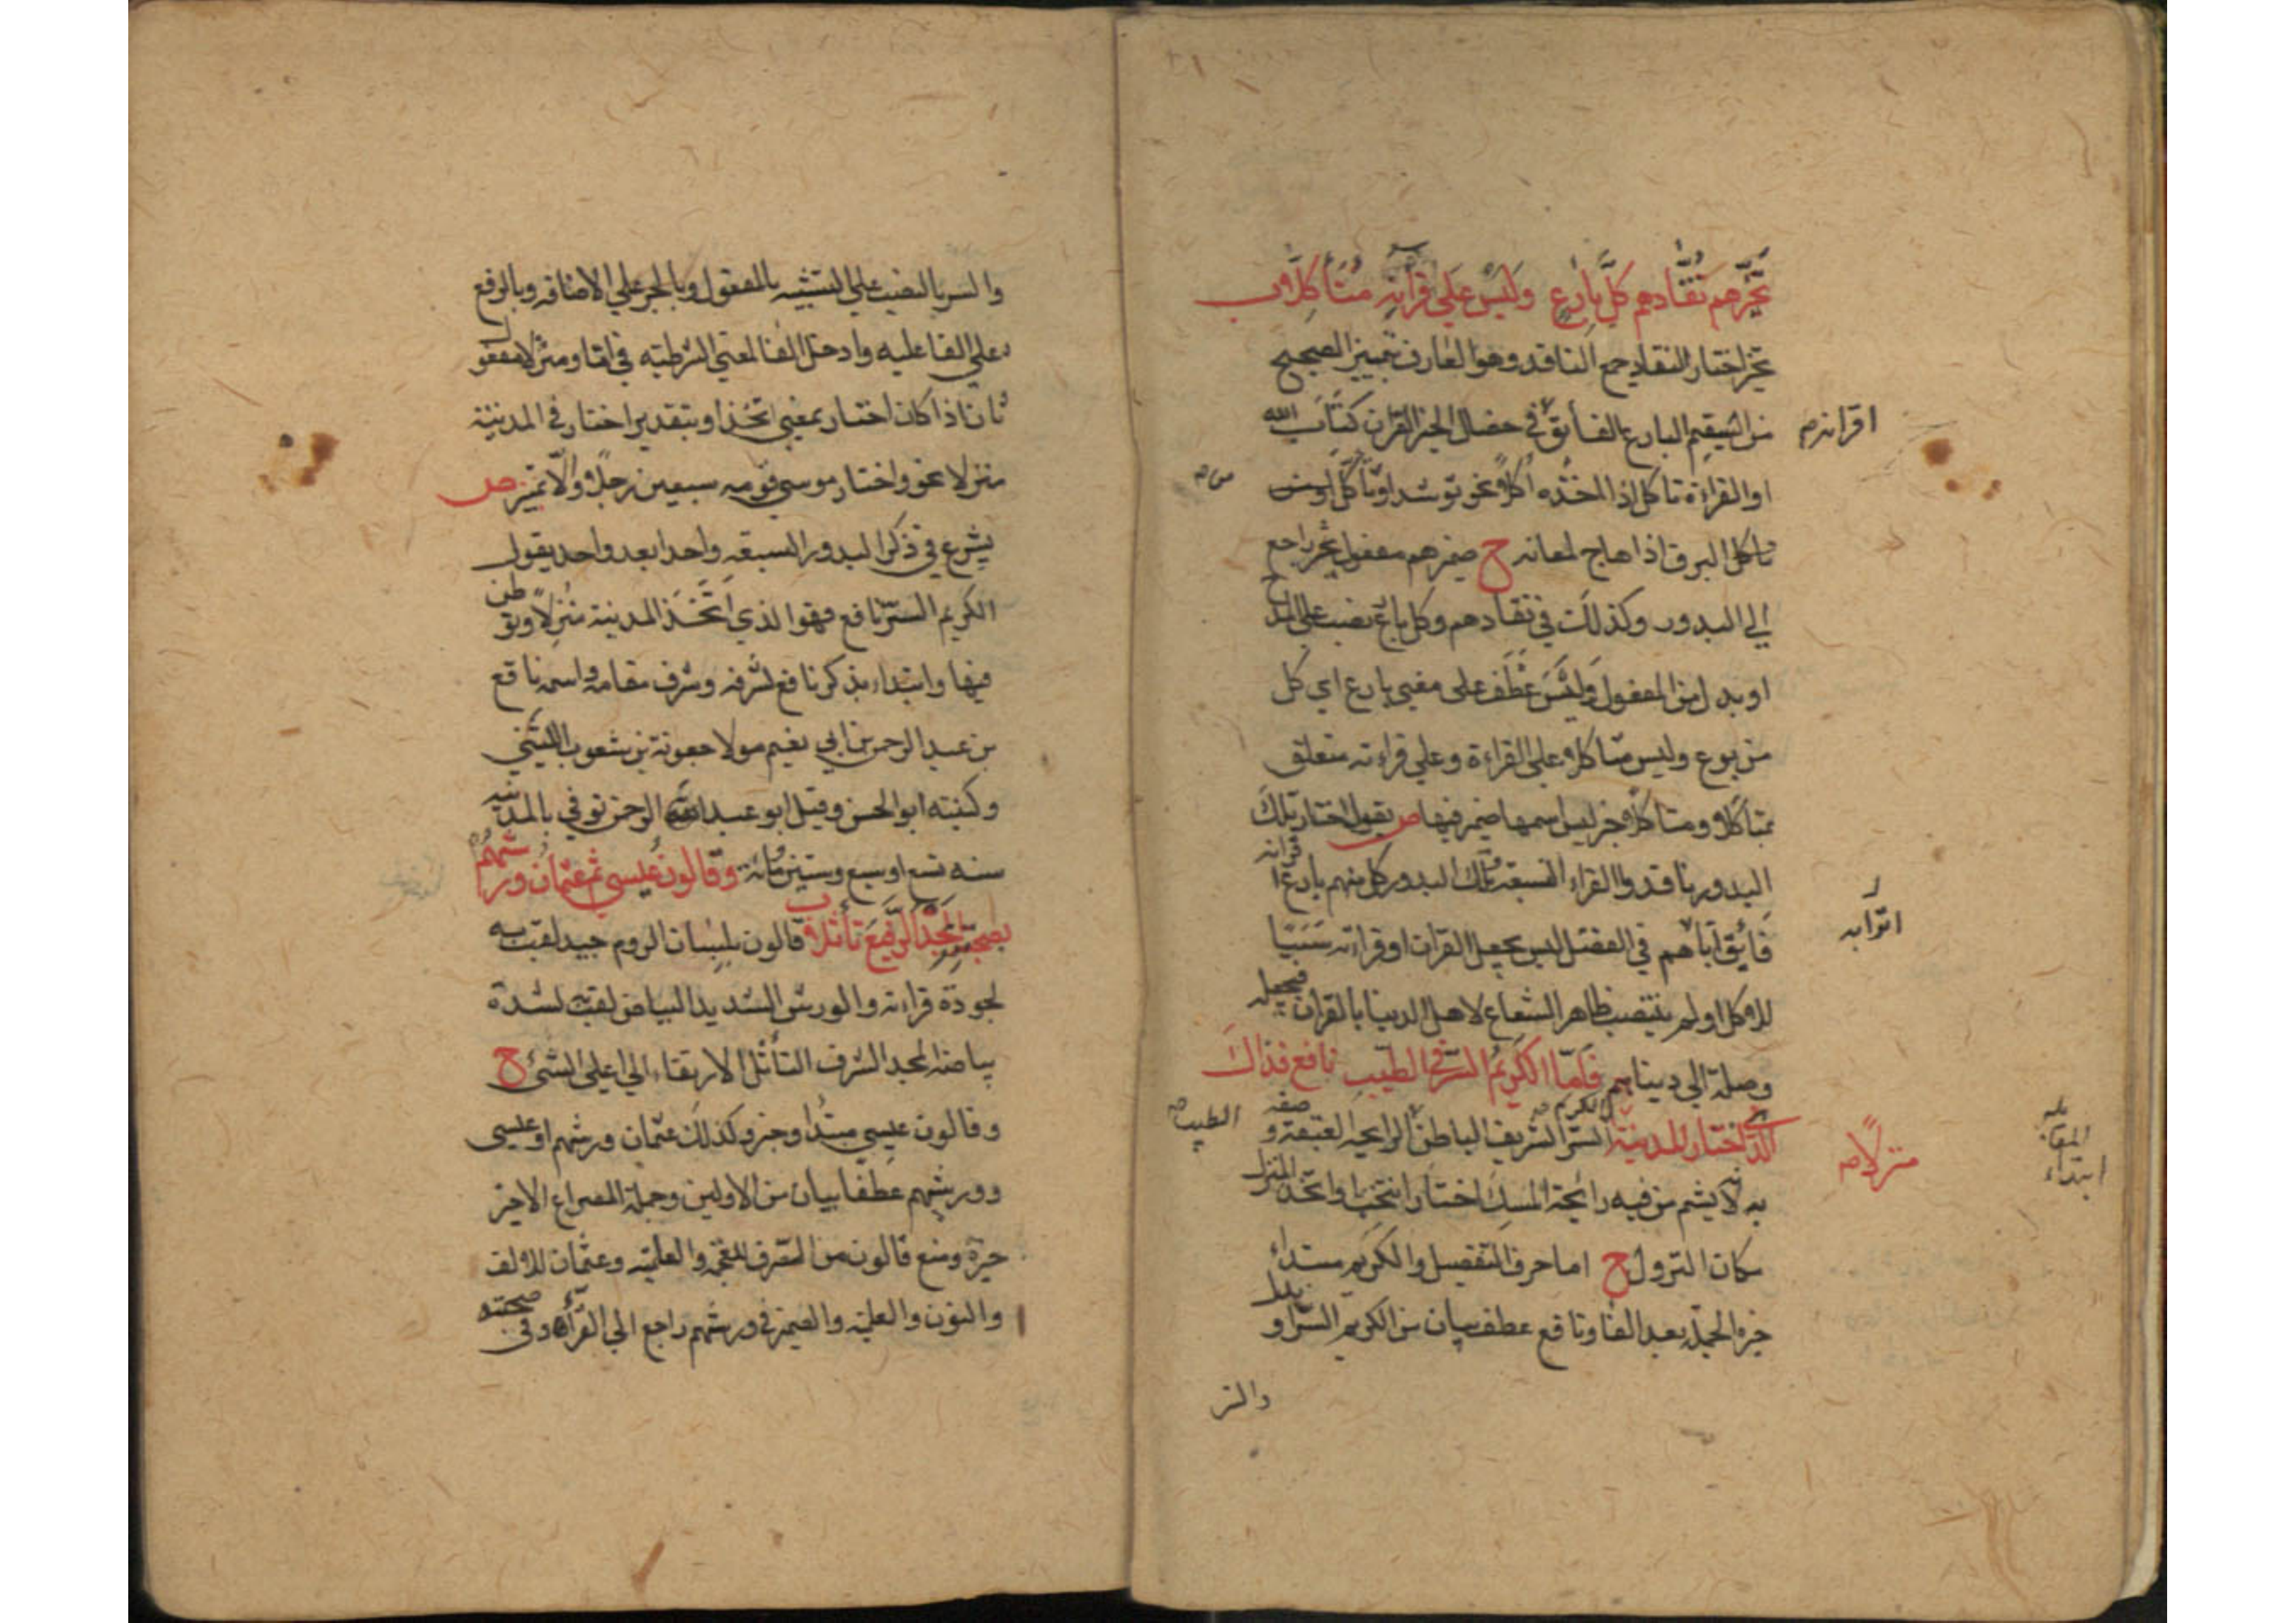 تخيرهم نقادهم كل بارع وليس على قرآنه متأكلا
تخير اختار النقاد جمع الناقد وهو العارف بتمييز الصحيح
من السقيم البارع الفائق في خصال الخير القرآن كتاب الله
اقرانه صح
او القراءة تاكل اذا اخذه أكلا نحو توسد او تأكل
تاكل البرق اذا هاج لمعانه ح ضميرهم مفعول تخير راجع
الي البدور وكذلك في نقادهم وكل بارع نصب على المدح
او بدل من المفعول وليس عطف على معني بارع اي كل
من برع وليس متاكلا على القراءة وعلي قراءته متعلق
بمتأكلا ومتاكلا خبر ليس اسمها ضمير فيها ص يقول اختار تلك
البدور ناقدوا القراء السبعة تلك البدور كل منهم بارع اقرانه
اترابه
فائق اباهم في الفضل ليس يجعل القران او قراءته سببا
للاكل او لم ينتصب ظاهر الشعاع لاهل الدنيا بالقران فيجعله
وصلة الي دنياهم فاما الكريم السر في الطيب نافع فذاك
الذي اختار المدينة السر الشريف الباطن الرايحة العبقة و
الكريم صفة
الطيب صح
منزلا صح
بلغ
المقابلة
ابتداء
به لانه يشم من فيه رائحة المسك اختار انتخب او اتخذ المنزل
مكان النزول ح اما حرف التفصيل والكريم مبتداء
خبره الجملة بعد الفا ونافع عطف بيان من الكريم السر او بدل
والسر
والسر بالنصب علي التشبيه بالمفعول وبالجر علي الاضافه وبالرفع
علي الفاعليه وادخل الفا لمعني الشرطيه في اما ومنزلا مفعول
ثان اذا كان اختار بمعني اتخذ او بتقدير اختار في المدينة
منزلا نحو واختار موسي قومه سبعين رجلا والا تميز ص
يشرع في ذكر البدور السبعة واحدا بعد واحد يقول
الكريم السر نافع فهو الذي اتخذ المدينة منزلا وتوطن
فيها وابتداء بذكر نافع لشرفه وشرف مقامه واسمه نافع
بن عبد الرحمن بن ابي نعيم مولا جعونة بن شعوب الليثي
وكنيته ابو الحسن وقيل ابو عبد الرحمن توفي بالمدينه
سنه تسع او سبع وستين ومائة وقالون عيسي ثم عثمان ورشهم
بصحبته المجد الرفيع تأثلا قالون بلسان الروم جيد لقب به
لجودة قراءته والورش الشديد البياض لقب لشدة
بياضه المجد الشرف التأثل الارتقاء الي اعلي الشئ ح
وقالون عيسي مبتدا وخبر وكذلك عثمان ورشهم او عيسى
وورشهم عطفا بيان من الاولين وجملة المصراع الاخير
خبره ومنع قالون من الصرف للعجمه والعلميه وعثمان للالف
والنون والعلميه والضمير في ورشهم راجع الي القراء وفي صحبته